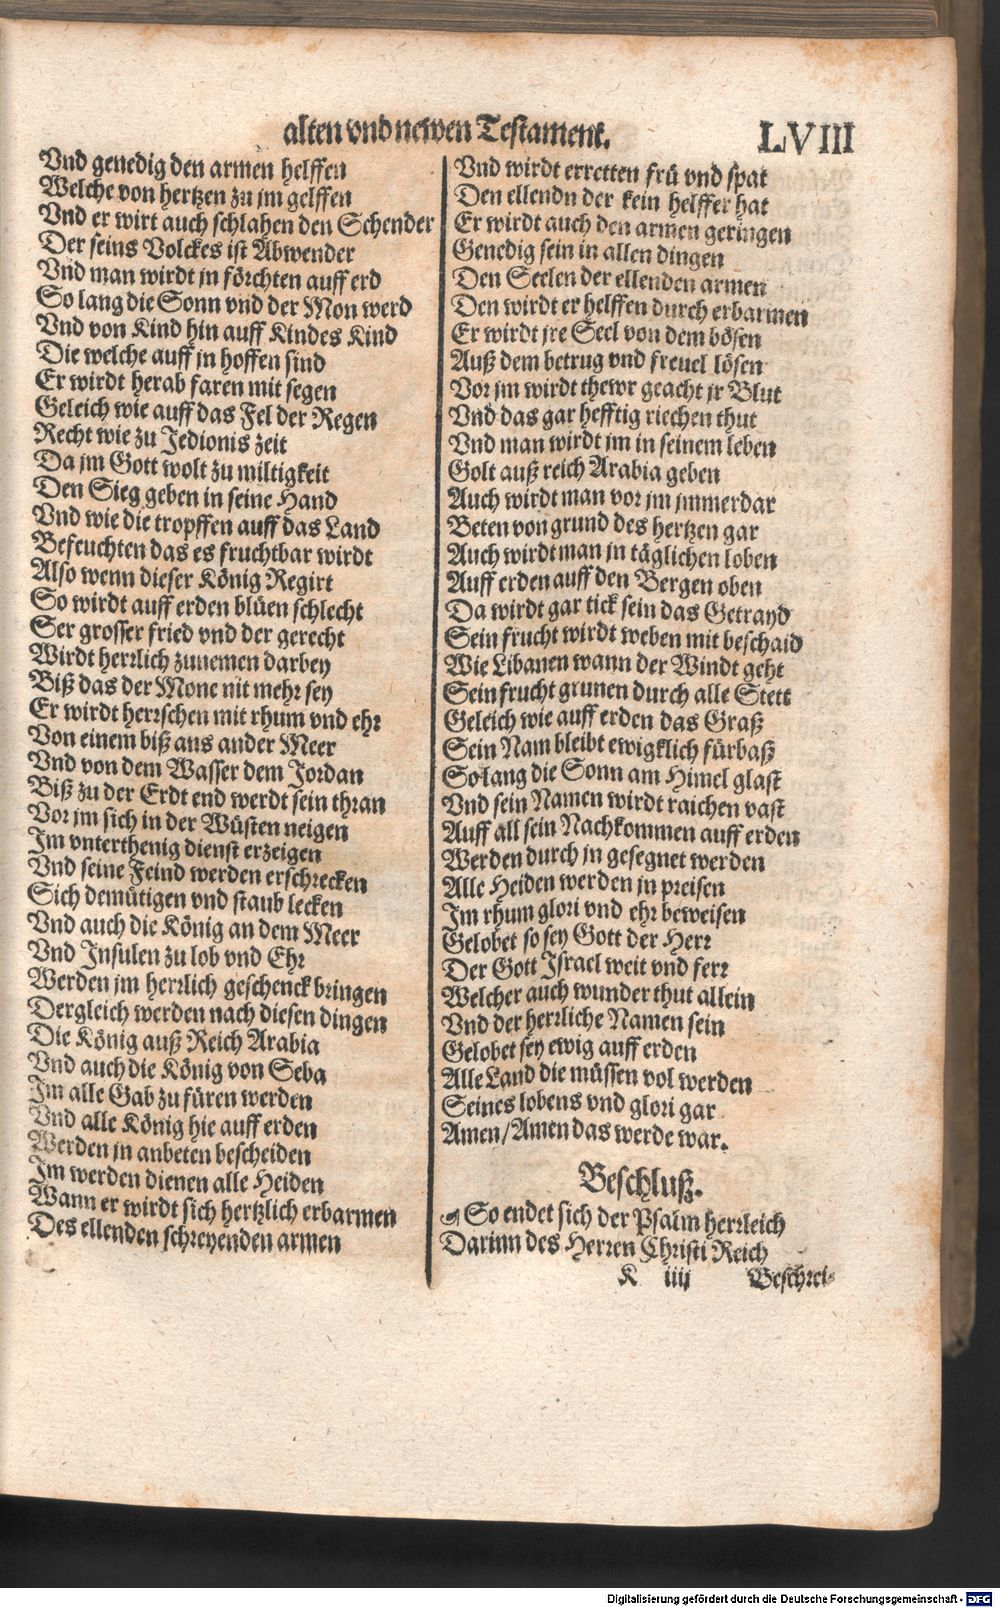 alten vnd newen Testament. LVIII
Vnd genedig den armen helffen
Welche von hertzen zu jm gelffen
Vnd er wirt auch schlahen den Schender
Der seins Volckes ist Abwender
Vnd man wirdt jn förchten auff erd
So lang die Sonn vnd der Mon werd
Vnd von Kind hin auff Kindes Kind
Die welche auff jn hoffen sind
Er wirdt herab faren mit segen
Geleich wie auff das Fel der Regen
Recht wie zu Jedionis zeit
Da jm Gott wolt zu miltigkeit
Den Sieg geben in seine Hand
Vnd wie die tropffen auff das Land
Befeuchten das es fruchtbar wirdt
Also wenn dieser König Regirt
So wirdt auff erden blüen schlecht
Ser grosser fried vnd der gerecht
Wirdt herrlich zunemen darbey
Biß das der Mone nit mehr sey
Er wirdt herrschen mit rhum vnd ehr
Von einem biß ans ander Meer
Vnd von dem Wasser dem Jordan
Biß zu der Erdt end werdt sein thran
Vor jm sich in der Wüsten neigen
Im vnterthenig dienst erzeigen
Vnd seine Feind werden erschrecken
Sich demütigen vnd staub lecken
Vnd auch die König an dem Meer
Vnd Insulen zu lob vnd Ehr
Werden jm herrlich geschenck bringen
Dergleich werden nach diesen dingen
Die König auß Reich Arabia
Vnd auch die König von Seba
Im alle Gab zu füren werden
Vnd alle König hie auff erden
Werden jn anbeten bescheiden
Im werden dienen alle Heiden
Wann er wirdt sich hertzlich erbarmen
Des ellenden schreyenden armen
Vnd wirdt erretten frü vnd spat
Den ellendn der kein helffer hat
Er wirdt auch den armen geringen
Genedig sein in allen dingen
Den Seelen der ellenden armen
Den wirdt er helffen durch erbarmen
Er wirdt jre Seel von dem bösen
Auß dem betrug vnd freuel lösen
Vor jm wirdt thewr geacht jr Blut
Vnd das gar hefftig riechen thut
Vnd man wirdt jm in seinem leben
Golt auß reich Arabia geben
Auch wirdt man vor jm jmmerdar
Beten von grund des hertzen gar
Auch wirdt man jn täglichen loben
Auff erden auff den Bergen oben
Da wirdt gar tick sein das Getrayd
Sein frucht wirdt weben mit beschaid
Wie Libanen wann der Windt geht
Sein frucht grunen durch alle Stett
Geleich wie auff erden das Graß
Sein Nam bleibt ewigklich fürbaß
So lang die Sonn am Himel glast
Vnd sein Namen wirdt raichen vast
Auff all sein Nachkommen auff erden
Werden durch jn gesegnet werden
Alle Heiden werden jn preisen
Im rhum glori vnd ehr beweisen
Gelobet so sey Gott der Herr
Der Gott Israel weit vnd ferr
Welcher auch wunder thut allein
Vnd der herrliche Namen sein
Gelobet sey ewig auff erden
Alle Land die müssen vol werden
Seines lobens vnd glori gar
Amen/Amen das werde war.
Beschluß.
So endet sich der Psalm herrleich
Darinn des Herren Christi Reich
K iiij Beschrei-
Digitalisierung gefördert durch die Deutsche Forschungsgemeinschaft - DFG